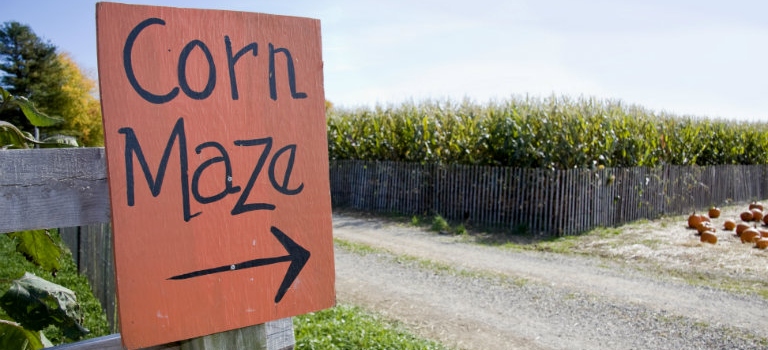 Corn
Maze